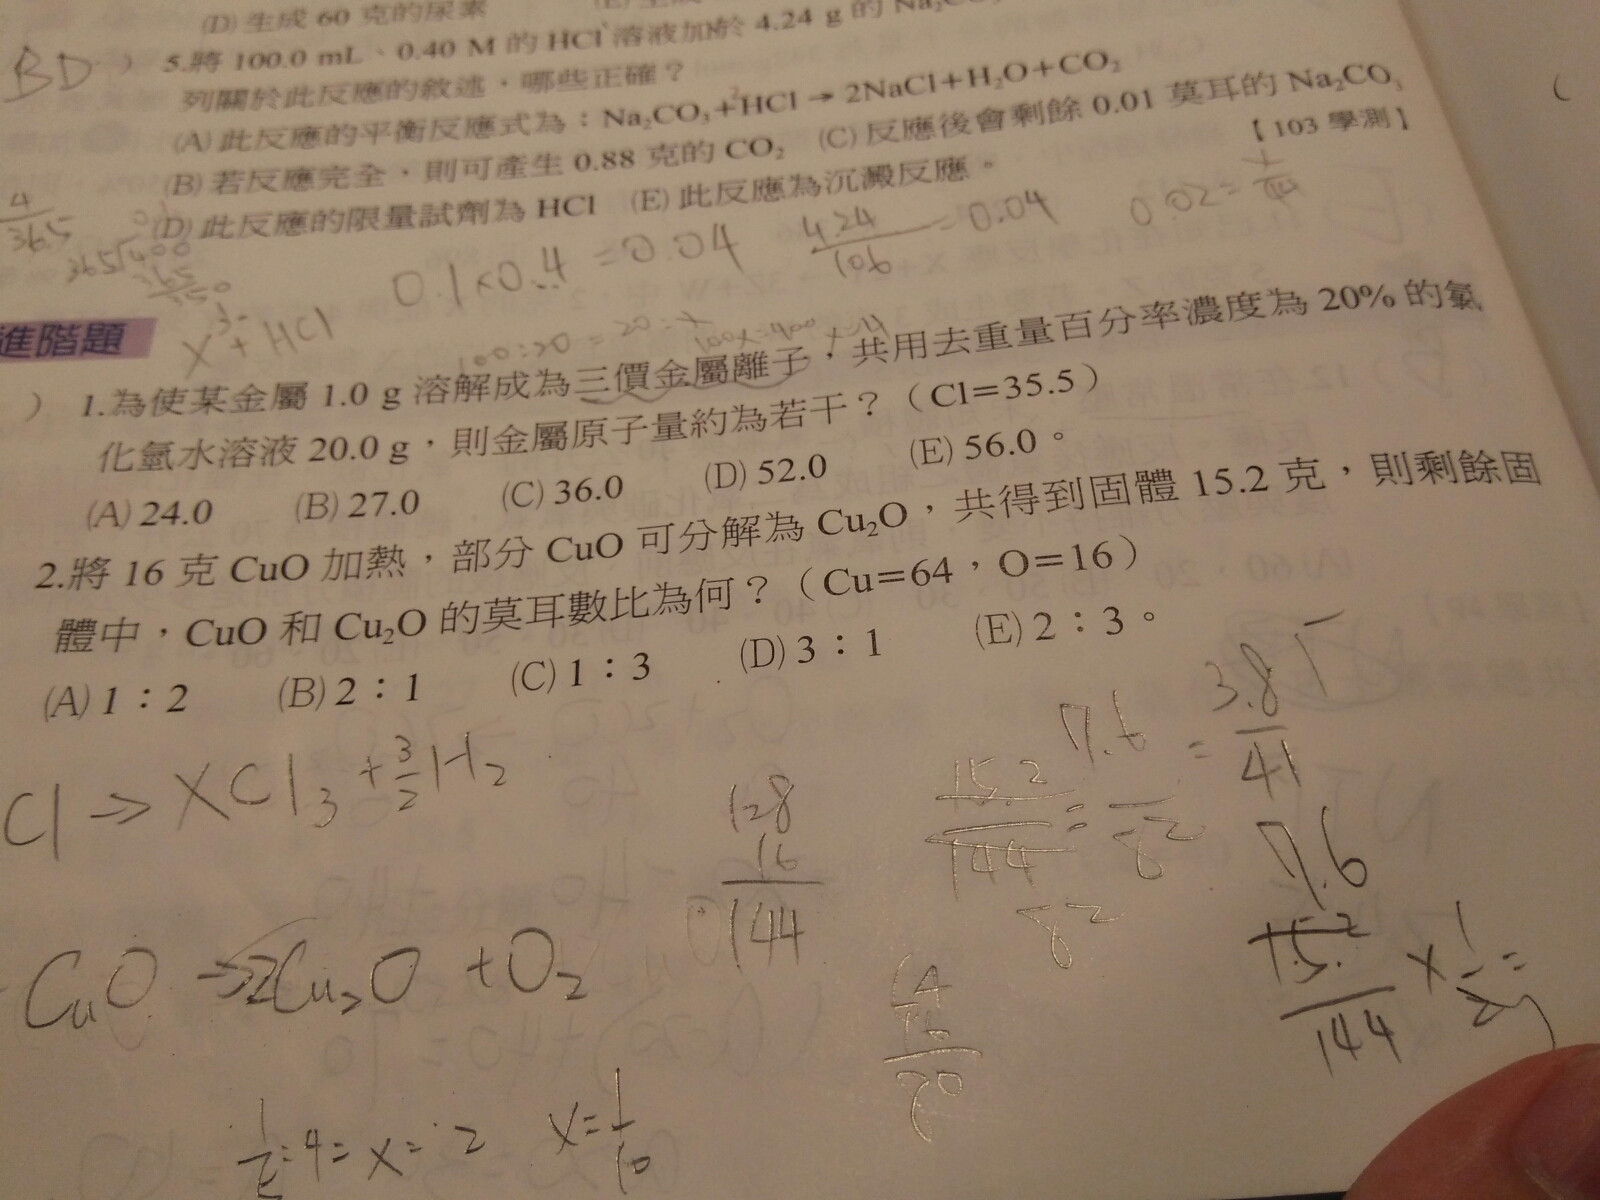 (D) 生成 60 克的尿素
BD ) 5.將 100.0 mL、0.40 M 的 HCl 溶液加於 4.24 g 的 Na₂CO₃
列關於此反應的敘述，哪些正確？
(A) 此反應的平衡反應式為：Na₂CO₃+2HCl → 2NaCl+H₂O+CO₂
(B) 若反應完全，則可產生 0.88 克的 CO₂ (C) 反應後會剩餘 0.01 莫耳的 Na₂CO₃
(D) 此反應的限量試劑為 HCl (E) 此反應為沉澱反應。
【103 學測】
4/36.5
0.1×0.4=0.04
424/106=0.04
0.02=
進階題
X³⁺+HCl
100:20=20:x
100x=400
) 1.為使某金屬 1.0 g 溶解成為三價金屬離子，共用去重量百分率濃度為 20% 的氯
化氫水溶液 20.0 g，則金屬原子量約為若干？（Cl=35.5）
(A) 24.0 (B) 27.0 (C) 36.0 (D) 52.0 (E) 56.0。
2.將 16 克 CuO 加熱，部分 CuO 可分解為 Cu₂O，共得到固體 15.2 克，則剩餘固
體中，CuO 和 Cu₂O 的莫耳數比為何？（Cu=64，O=16）
(A) 1：2 (B) 2：1 (C) 1：3 (D) 3：1 (E) 2：3。
Cl → XCl₃ + 3/2 H₂
128
16
144
15.2/144
7.6
82
3.8/41
7.6
15.2/144 × 1/2 =
CuO → 2Cu₂O + O₂
64
16
x=1/10